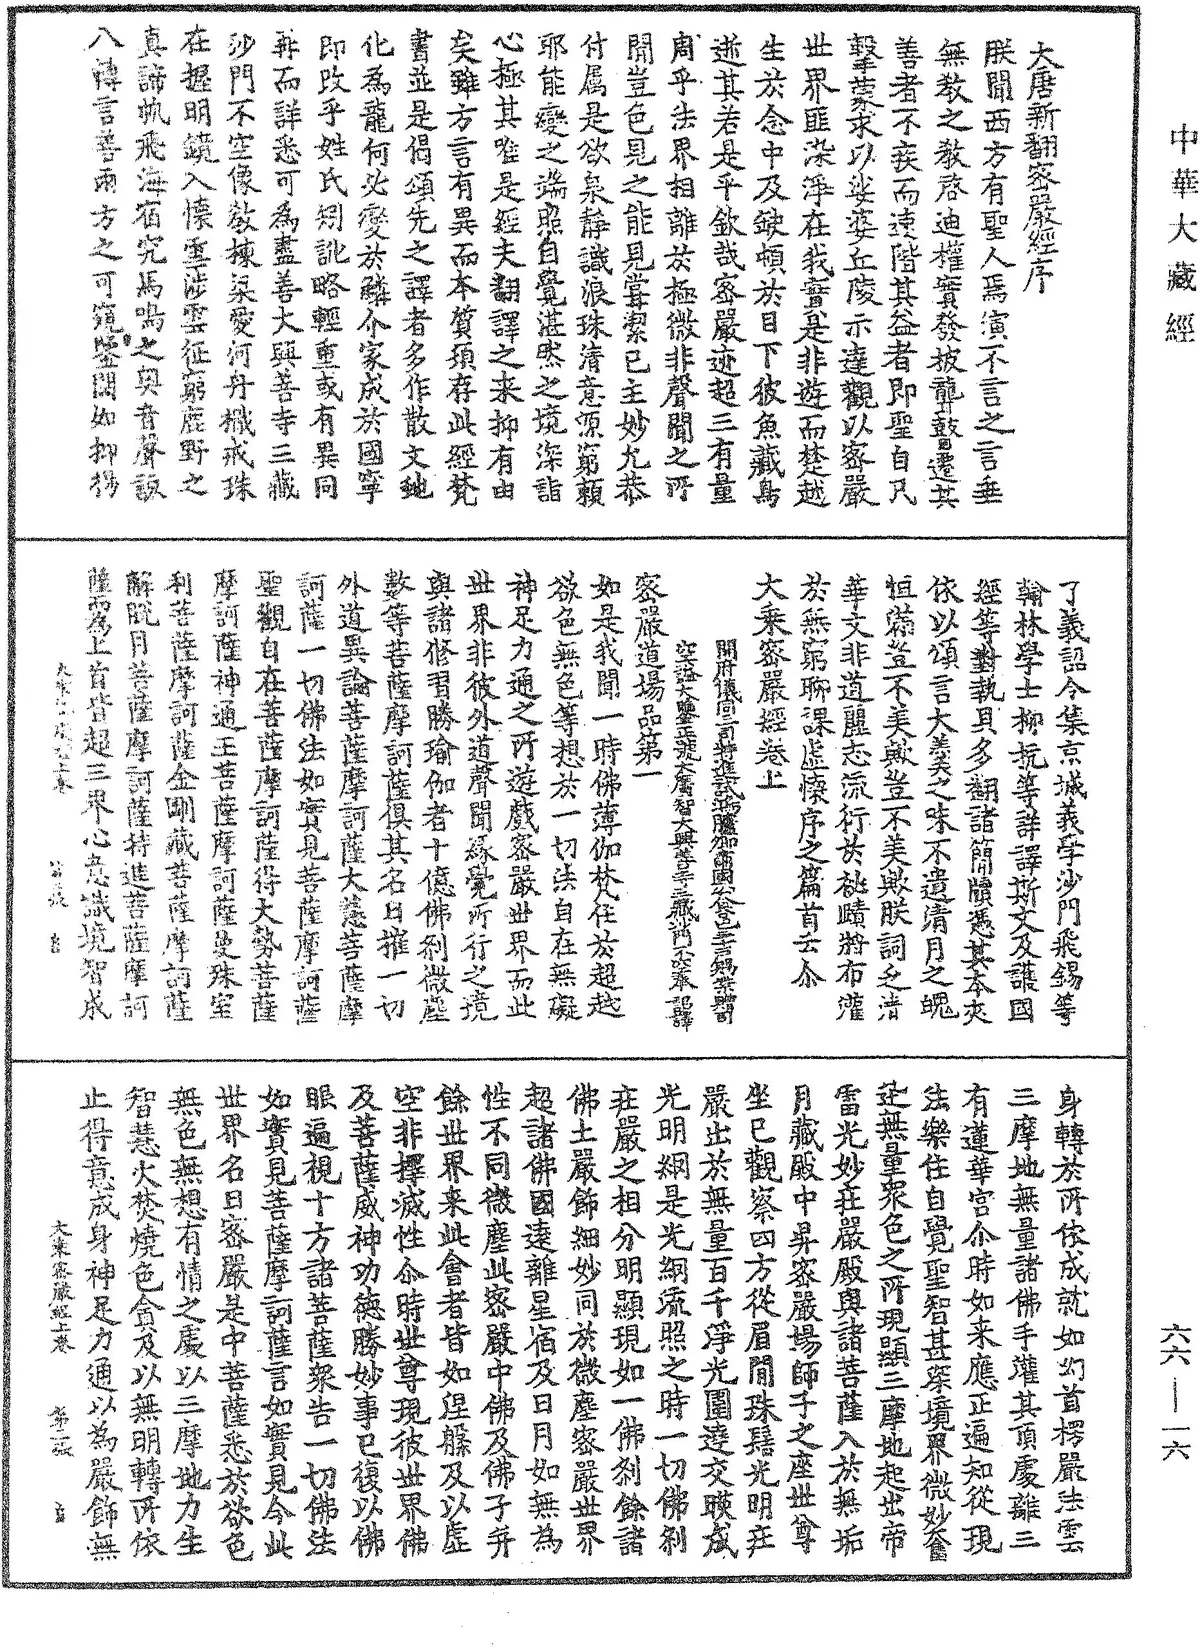 中華大藏經
大唐新翻密嚴經序
朕聞西方有聖人焉演不言之言垂
無教之教啓迪權實發披聾瞽遷其
善者不疾而速階其益者即聖自凡
擊蒙求以娑婆丘陵示達觀以密嚴
世界匪染淨在我實是非遊而楚越
生於念中及缺頓於目下彼魚藏鳥
逝其若是乎欽哉密嚴迹超三有量
周乎法界相離於極微非聲聞之所
聞豈色見之能見嘗潔己主妙允恭
付屬是欲泉靜識浪珠清意源窮賴
耶能變之端照自覺湛然之境深詣
心極其唯是經夫翻譯之来抑有由
矣雖方言有異而本質須存此經梵
書並是偈頌先之譯者多作散文虵
化為龍何必變於鱗介家成於國寧
即改乎姓氏矧訛略輕重或有異同
再而詳悉可為盡善大興善寺三藏
沙門不空像教棟梁愛河舟檝戒珠
在握明鏡入懷雲涉雪征窮鹿野之
真諦帆飛海宿究馬鳴之奥音聲詼
八轉言善兩方之可窺鑒闕如抑揚
了義詔令集京城義學沙門飛錫等
翰林學士柳抗等詳譯斯文及護國
經等對執貝多翻諸簡牘憑其本夾
依以頌言大羹之味不遺清月之魄
恒滿豈不美歟豈不美歟朕詞乏清
華文非道麗志流行於祕賾將布灌
於無窮聊課虛懷序之篇首云尒
大乘密嚴經卷上
開府儀同三司特進試鴻臚卿肅國公食邑三千戶賜紫贈司
空謚大鑒正號大廣智大興善寺三藏沙門不空奉　詔譯
密嚴道場品第一
如是我聞一時佛薄伽梵住於超越
欲色無色等想於一切法自在無礙
神足力通之所遊戲密嚴世界而此
世界非彼外道聲聞緣覺所行之境
與諸修習勝瑜伽者十億佛刹微塵
數等菩薩摩訶薩俱其名曰摧一切
外道異論菩薩摩訶薩大慧菩薩摩
訶薩一切佛法如實見菩薩摩訶薩
聖觀自在菩薩摩訶薩得大勢菩薩
摩訶薩神通王菩薩摩訶薩曼殊室
利菩薩摩訶薩金剛藏菩薩摩訶薩
解脫月菩薩摩訶薩持進菩薩摩訶
薩而為上首皆超三界心意識境智成
身轉於所依成就如幻首楞嚴法雲
三摩地無量諸佛手灌其頂處離三
有蓮華宮尒時如來應正遍知從現
法樂住自覺聖智甚深境界微妙奮
迅無量衆色之所現顯三摩地起出帝
雷光妙莊嚴殿與諸菩薩入於無垢
月藏殿中昇密嚴場師子之座世尊
坐已觀察四方從眉間珠髻光明莊
嚴出於無量百千淨光圍遶交暎成
光明網是光網流照之時一切佛刹
莊嚴之相分明顯現如一佛刹餘諸
佛土嚴飾細妙同於微塵密嚴世界
超諸佛國遠離星宿及日月如無為
性不同微塵此密嚴中佛及佛子并
餘世界来此會者皆如涅槃及以虛
空非擇滅性尒時世尊現彼世界佛
及菩薩威神功德勝妙事已復以佛
眼遍視十方諸菩薩衆告一切佛法
如實見菩薩摩訶薩言如實見今此
世界名曰密嚴是中菩薩悉於欲色
無色無想有情之處以三摩地力生
智慧火焚燒色貪及以無明轉所依
止得意成身神足力通以為嚴飾無
大乘密嚴經上卷　第二張
六六—一六